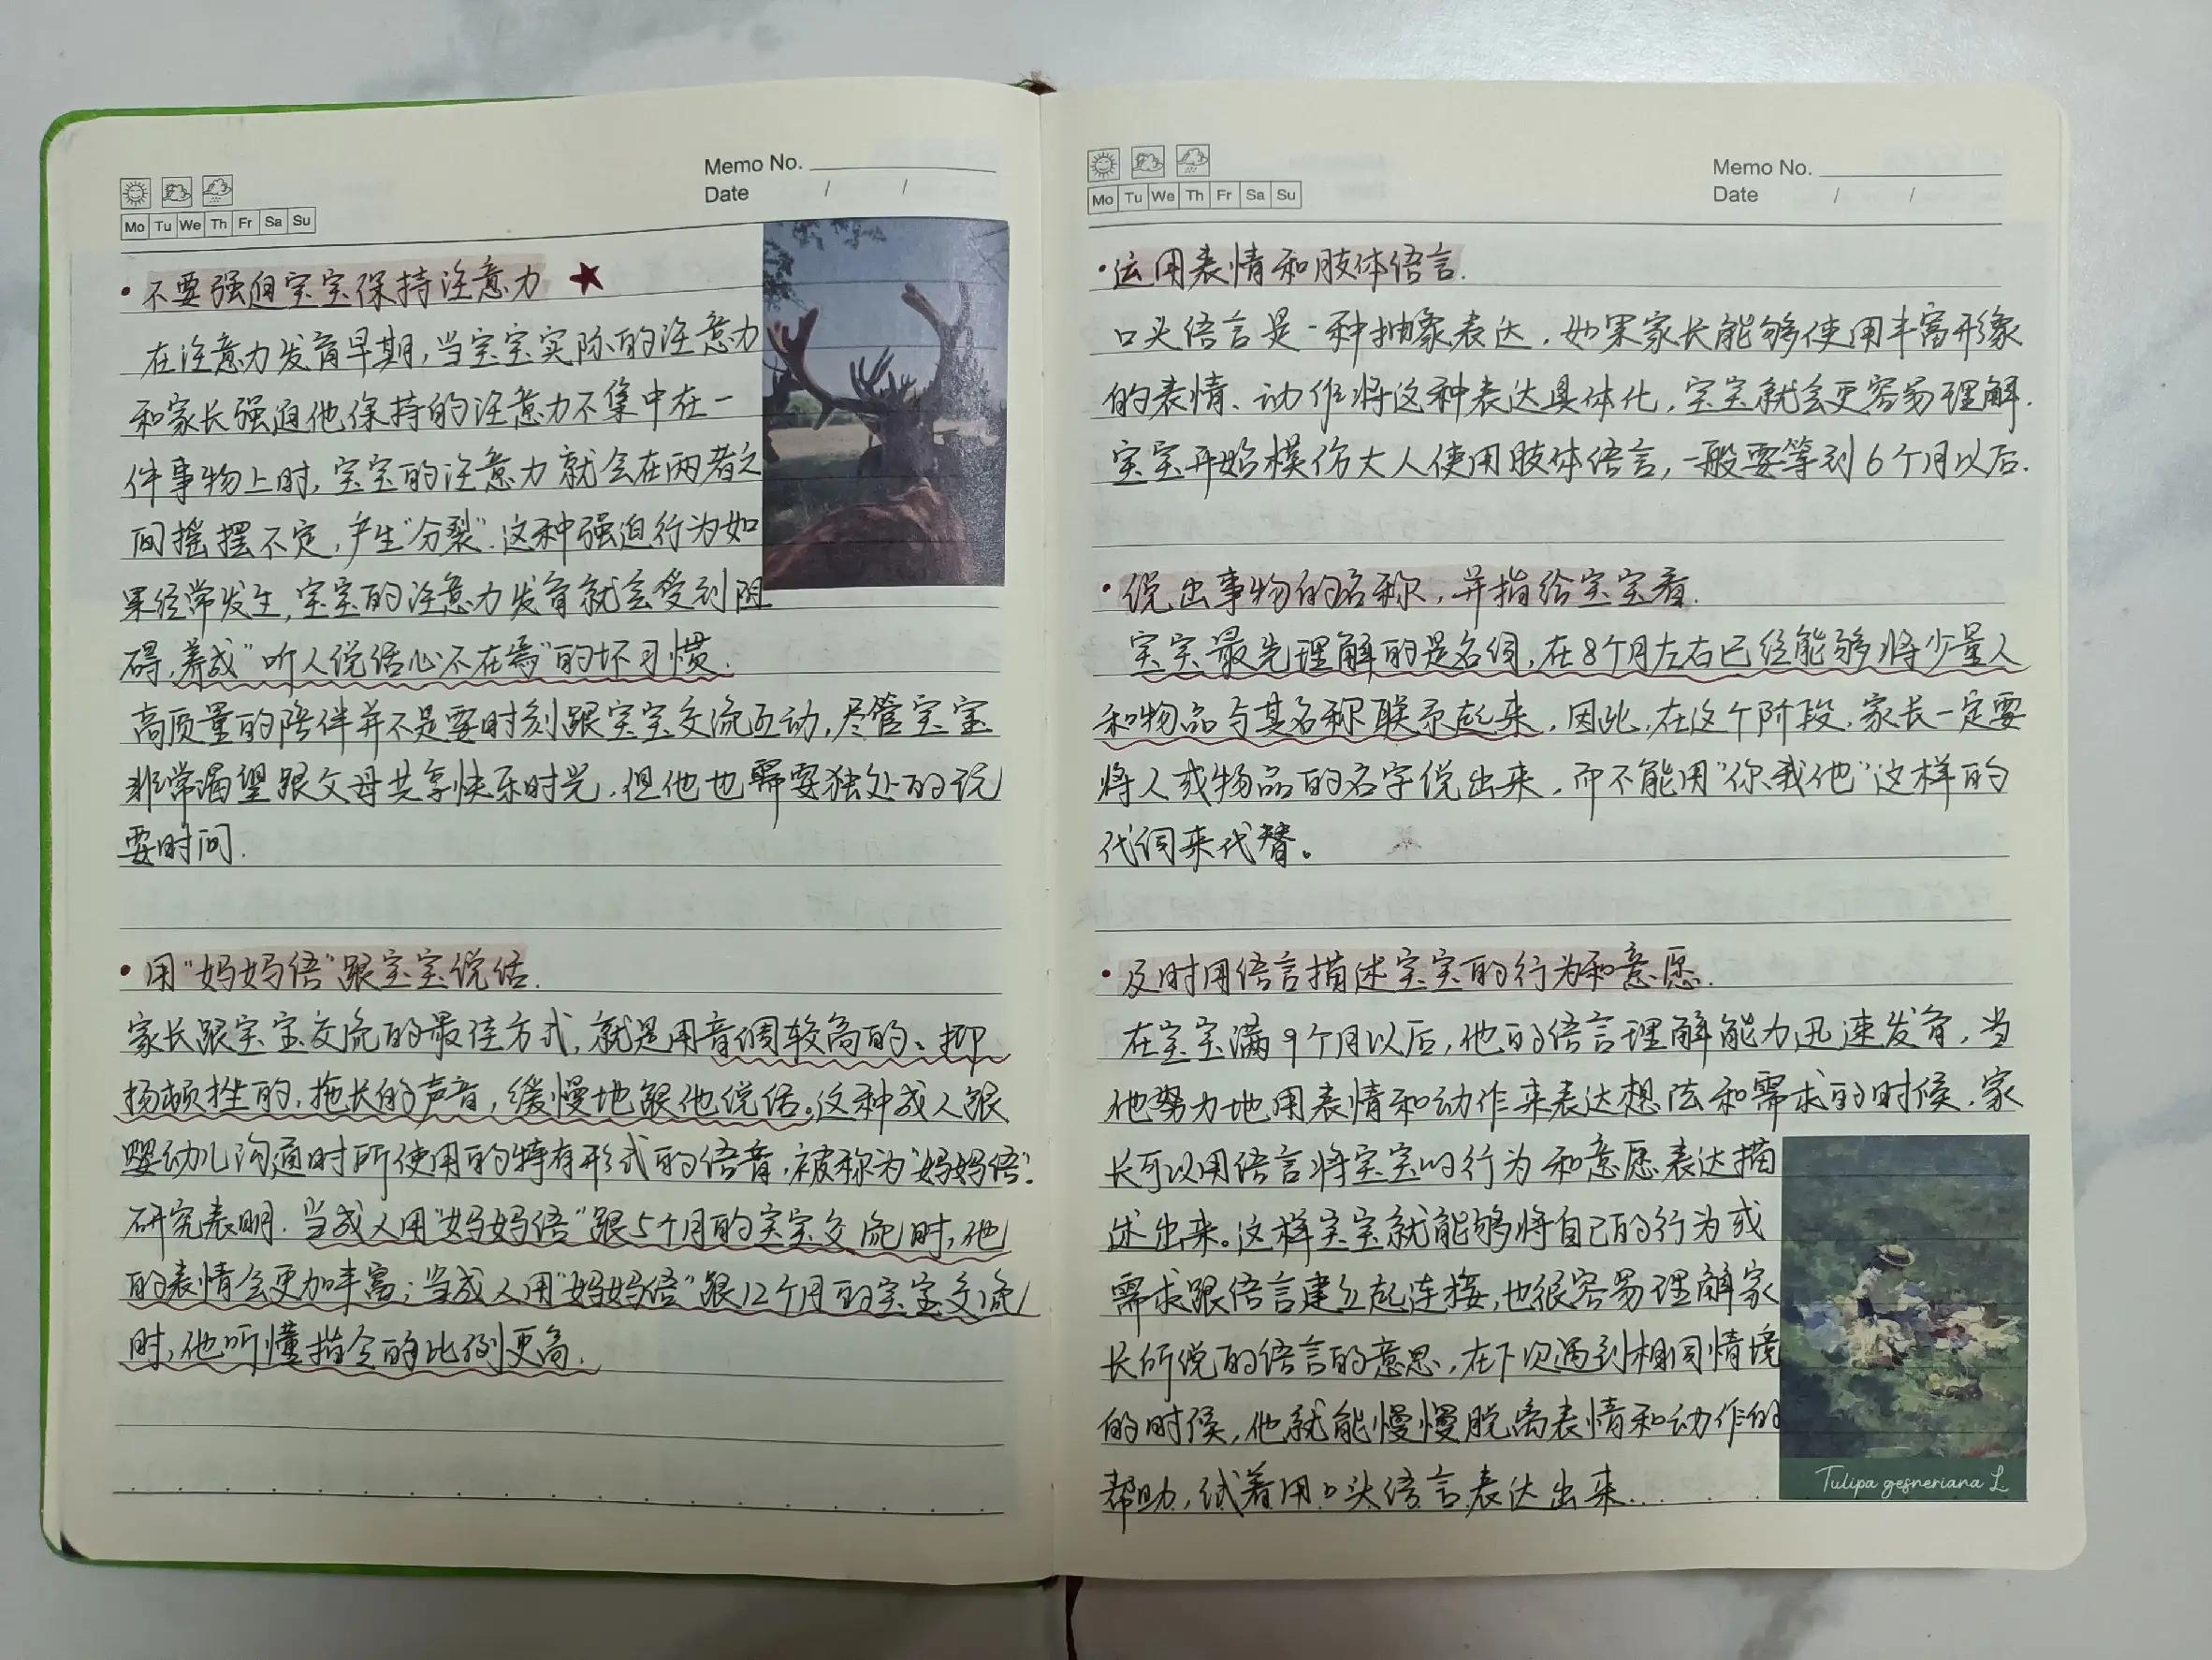 Memo No.
Date / /
Mo Tu We Th Fr Sa Su
·不要强迫宝宝保持注意力 ★
在注意力发育早期,当宝宝实际的注意力
和家长强迫他保持的注意力不集中在一
件事物上时,宝宝的注意力就会在两者之
间摇摆不定,产生"分裂".这种强迫行为如
果经常发生,宝宝的注意力发育就会受到阻
碍,养成"听人说话心不在焉"的坏习惯.
高质量的陪伴并不是要时刻跟宝宝交流互动,尽管宝宝
非常渴望跟父母共享快乐时光,但他也需要独处的玩
耍时间.
·用"妈妈语"跟宝宝说话.
家长跟宝宝交流的最佳方式,就是用音调较高的、抑
扬顿挫的,拖长的声音,缓慢地跟他说话。这种成人跟
婴幼儿沟通时所使用的特有形式的语音,被称为"妈妈语".
研究表明.当成人用"妈妈语"跟5个月的宝宝交流时,他
的表情会更加丰富;当成人用"妈妈语"跟12个月的宝宝交流
时,他听懂指令的比例更高.
Memo No.
Date / /
Mo Tu We Th Fr Sa Su
·运用表情和肢体语言.
口头语言是一种抽象表达,如果家长能够使用丰富形象
的表情、动作将这种表达具体化,宝宝就会更容易理解.
宝宝开始模仿大人使用肢体语言,一般要等到6个月以后.
·说出事物的名称,并指给宝宝看.
宝宝最先理解的是名词,在8个月左右已经能够将少量人
和物品与其名称联系起来.因此,在这个阶段,家长一定要
将人或物品的名字说出来,而不能用"你.我.他"这样的
代词来代替。
·及时用语言描述宝宝的行为和意愿.
在宝宝满9个月以后,他的语言理解能力迅速发育,当
他努力地用表情和动作来表达想法和需求的时候,家
长可以用语言将宝宝的行为和意愿表达描
述出来。这样宝宝就能够将自己的行为或
需求跟语言建立起连接,也很容易理解家
长所说的语言的意思,在下次遇到相同情境
的时候,他就能慢慢脱离表情和动作的
帮助,试着用口头语言表达出来.
Tulipa gesneriana L